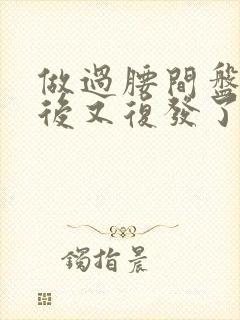 做過腰間盤
後又復發了
鐲指晨